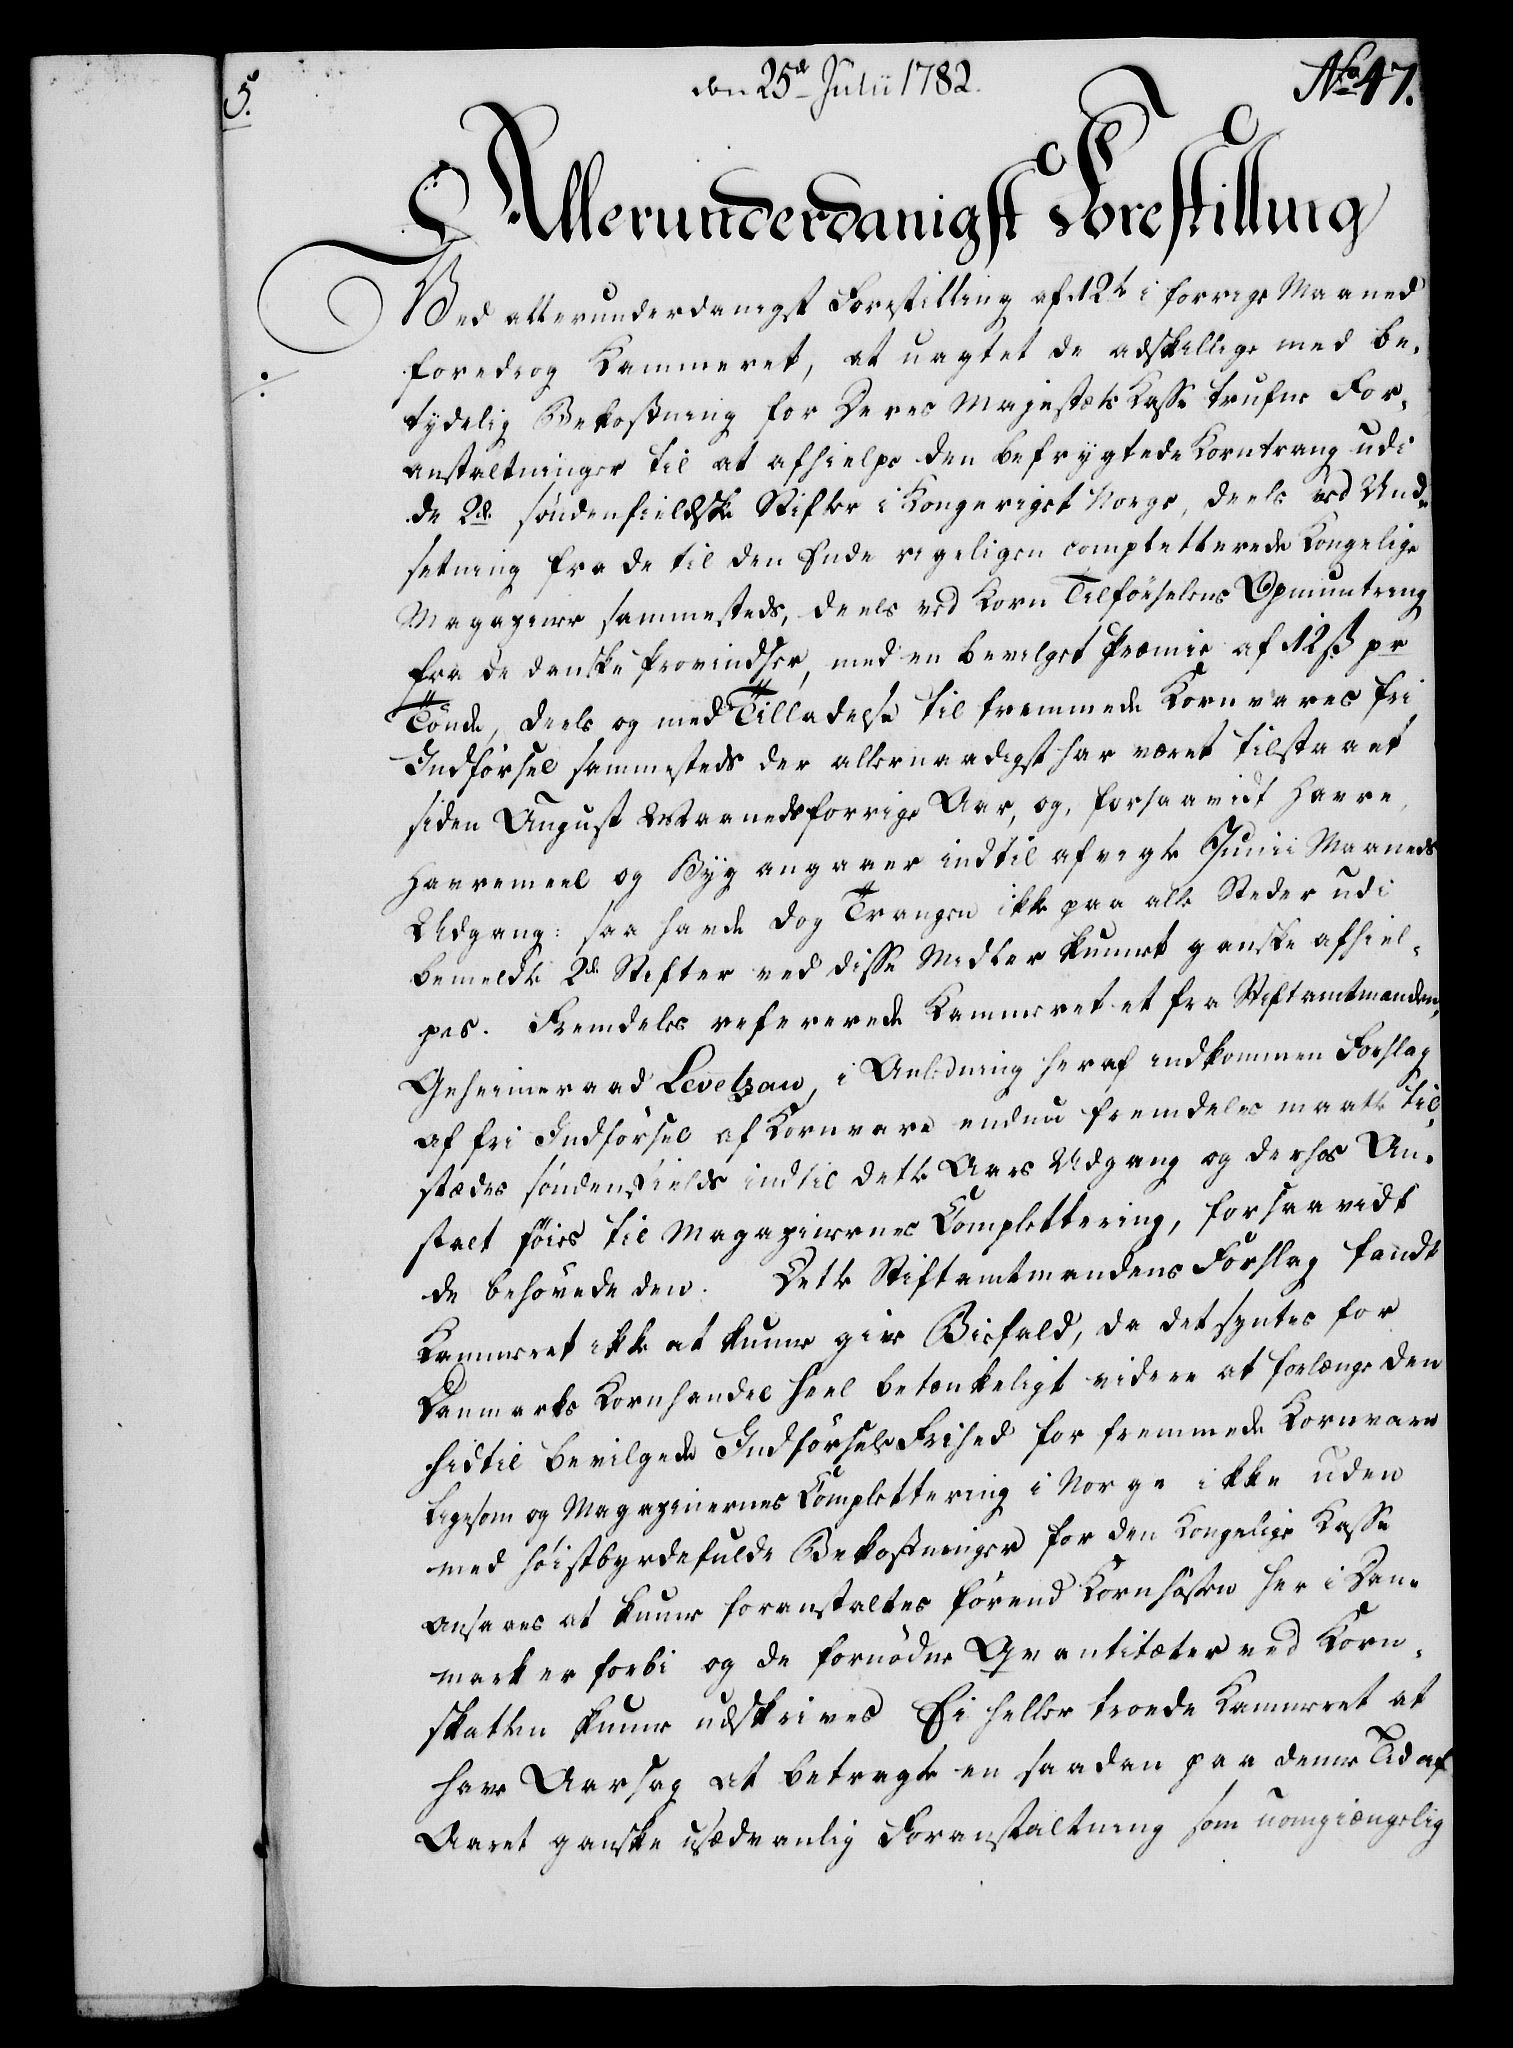 5.
den 25de Julii 1782.
No 47.
Allerunderdanigst Forestilling
Ved allerunderdanigst Forestilling af 12te i forrige Maaned
foredrog Kammeret, at uagtet de adskillige med be-
tydelig Bekostning for Deres Majestæts Kasse trufne For-
anstaltninger til at afhielpe den befrygtede Korntrang udi
de 2de søndenfieldske Stifter i Kongeriget Norge, deels ved Und-
setning fra de til den Ende rigeligen completterede Kongelige
Magaziner sammesteds, deels ved Korn Tilførselens Opmuntring
fra de danske Provindser, med en bevilget Præmie af 12 ß pr
Tønde, deels og med Tilladelse til fremmede Kornvares fri
Indførsel sammesteds der allernaadigst har været tilstaaet
siden August Maaned forrige Aar, og, forsaavidt Havre,
Havremeel og Byg angaaer indtil afvigte Junii Maaneds
Udgang: saa havde dog Trangen ikke paa alle Steder udi
bemeldte 2de Stifter ved disse Midler kunnet ganske afhiel-
pes. Fremdeles refererede Kammeret et fra Stiftamtmanden,
Geheimeraad Levetzau, i Anledning heraf indkommen Forslag
af fri Indførsel af Kornvare endnu fremdeles maatte til-
stædes søndenfields indtil dette Aars Udgang og derhos An-
stalt føies til Magazinernes Complettering, forsaavidt
de behøvede den. Dette Stiftamtmandens Forslag fandt
Kammeret ikke at kunne give Biefald, da det syntes for
Danmarks Kornhandel heel betænkeligt videre at forlænge den
hidtil bevilgede Indførsels Frihed for fremmede Kornvare
ligesom og Magazinernes Complettering i Norge ikke uden
med høistbyrdefulde Bekostninger for den Kongelige Kasse
ansaaes at kunne foranstaltes førend Kornhøsten her i Dan-
mark er forbi og de fornødne Qvantitæter ved Korn-
skatten kunne udskrives Ei heller troede Kammeret at
have Aarsag at betragte en saadan paa denne Tid af
Aaret ganske usædvanlig Foranstaltning som uomgiængelig